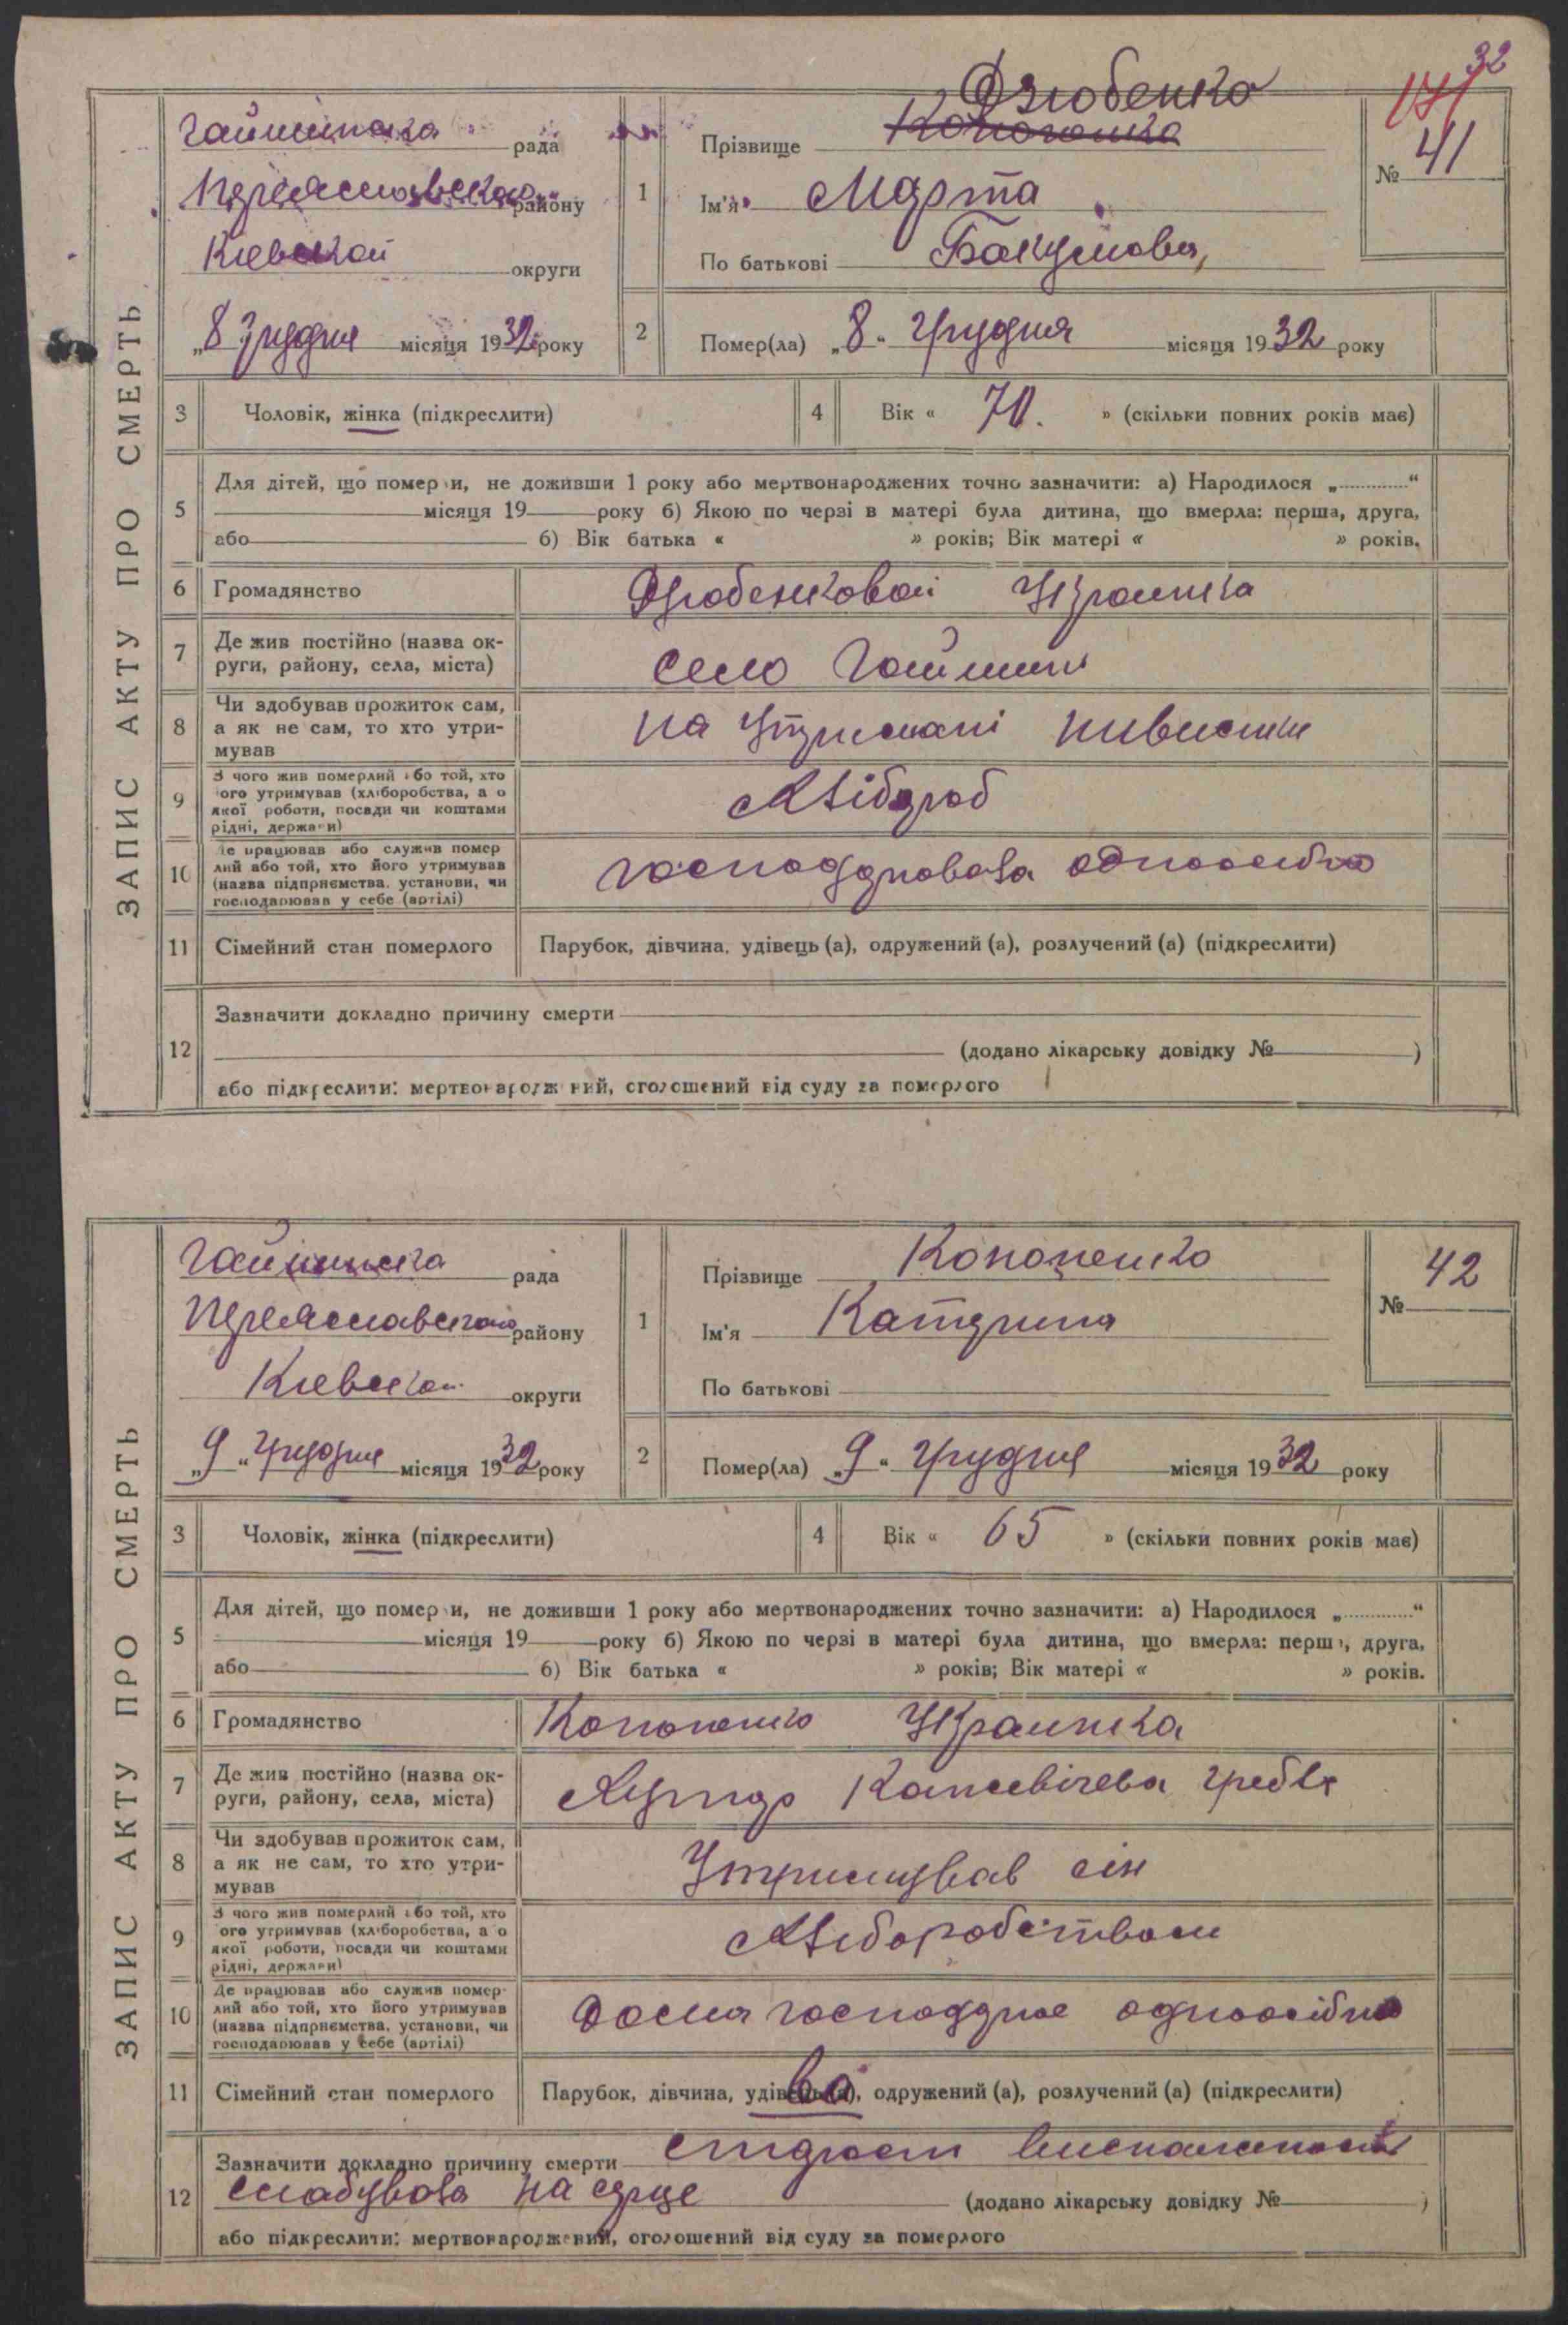 32
171
ЗАПИС АКТУ ПРО СМЕРТЬ
Гайшинська рада
Переяславського району
Киевской округи
„8 грудня місяця 1932 року
1
Дзюбенко
Прізвище
Ім'я Марта
По батькові
№ 41
2 Помер(ла) „8" грудня місяця 1932 року
3 Чоловік, жінка (підкреслити)
4 Вік « 70. » (скільки повних років має)
5 Для дітей, що помер и, не доживши 1 року або мертвонароджених точно зазначити: а) Народилося „............“
місяця 19 року б) Якою по черзі в матері була дитина, що вмерла: перша, друга,
або б) Вік батька « » років; Вік матері « » років.
6 Громадянство Українка
7 Де жив постійно (назва ок-
руги, району, села, міста)
село Гайшин
8 Чи здобував прожиток сам,
а як не сам, то хто утри-
мував
на утримані
9 З чого жив померлий або той, хто
ого утримував (хліборобства, а о
якої роботи, посади чи коштами
рідні, держави)
Хлібороб
10 Де працював або служив помер
лий або той, хто його утримував
(назва підприємства, установи, чи
господарював у себе (артілі)
господарювала одноосібно
11 Сімейний стан померлого Парубок, дівчина, удівець (а), одружений (а), розлучений (а) (підкреслити)
12 Зазначити докладно причину смерти
(додано лікарську довідку № )
або підкреслити: мертвонароджений, оголошений від суду за померлого
ЗАПИС АКТУ ПРО СМЕРТЬ
Гайшинська рада
Переяславського району
Киевской округи
„9" грудня місяця 1932 року
1
Прізвище Кононенко
Ім'я Катерина
По батькові
№ 42
2 Помер(ла) „9" грудня місяця 1932 року
3 Чоловік, жінка (підкреслити)
4 Вік « 65 » (скільки повних років має)
5 Для дітей, що помер и, не доживши 1 року або мертвонароджених точно зазначити: а) Народилося „............“
місяця 19 року б) Якою по черзі в матері була дитина, що вмерла: перш , друга,
або б) Вік батька « » років; Вік матері « » років.
6 Громадянство Кононенко Українка
7 Де жив постійно (назва ок-
руги, району, села, міста)
Хутор гребля
8 Чи здобував прожиток сам,
а як не сам, то хто утри-
мував
Утримував син
9 З чого жив померлий або той, хто
ого утримував (хліборобства, а о
якої роботи, посади чи коштами
рідні, держави)
Хлеборобством
10 Де працював або служив помер-
лий або той, хто його утримував
(назва підприємства, установи, чи
господарював у себе (артілі)
дома одноосібно
11 Сімейний стан померлого Парубок, дівчина, удівець (а), одружений (а), розлучений (а) (підкреслити)
ва
12 Зазначити докладно причину смерти
на серце (додано лікарську довідку № )
або підкреслити: мертвонароджений, оголошений від суду за померлого